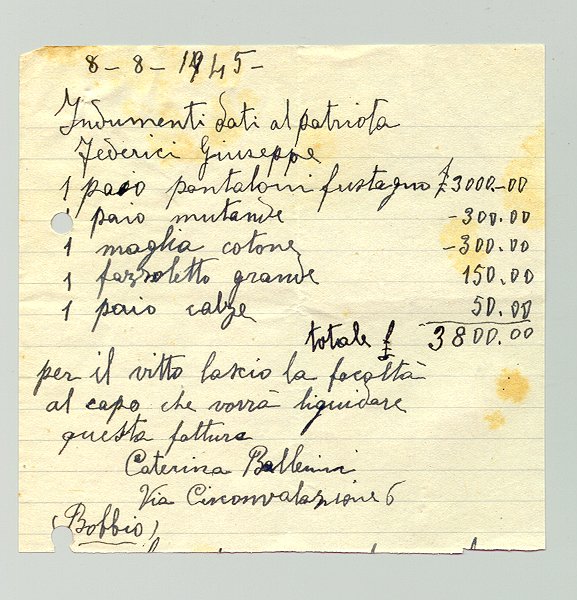 8-8-1945-
Indumenti dati al patriota
Federici Giuseppe
1 paio pantaloni fustagno £ 3000-00
1 paio mutande -300.00
1 maglia cotone -300.00
1 fazzoletto grande 150.00
1 paio calze 50.00
totale £ 3800.00
per il vitto lascio la facoltà
al capo che vorrà liquidare
questa fattura
Caterina Ballerini
Via Circonvalazione 6
(Bobbio)